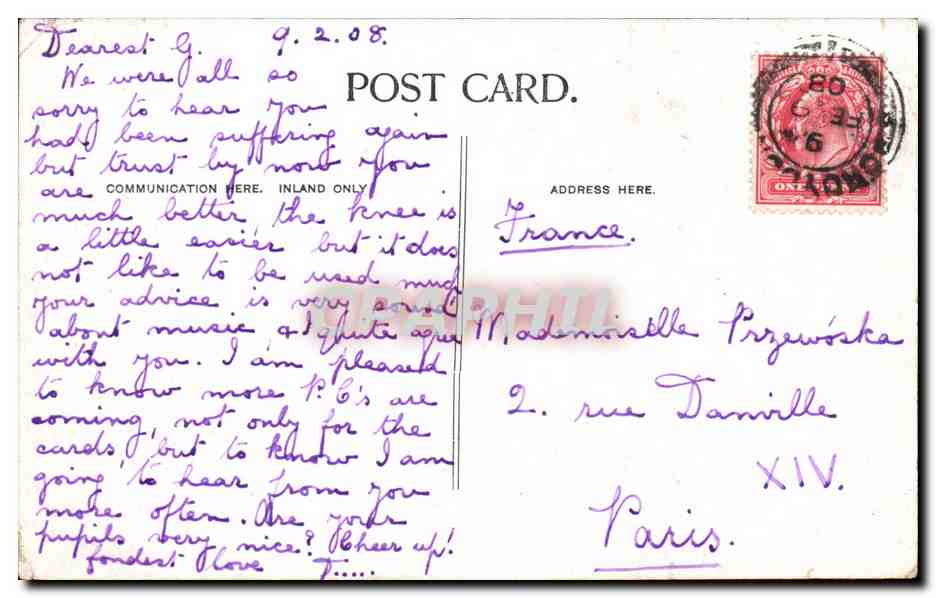 Dearest G. 9.2.08.
We were all so
sorry to hear you
had been suffering again
but trust by now you
are
much better, the knee is
a little easier but it does
not like to be used much
your advice is very sound
about music & I quite agree
with you. I am pleased
to know more P.C's are
coming, not only for the
cards, but to know I am
going to hear from you
more often. Are your
pupils very nice? Cheer up!
fondest love T.....
POST CARD.
COMMUNICATION HERE. INLAND ONLY
ADDRESS HERE.
France.
Mademoiselle Przewóska
2. rue Danville
XIV.
Paris.
ONE
08
9